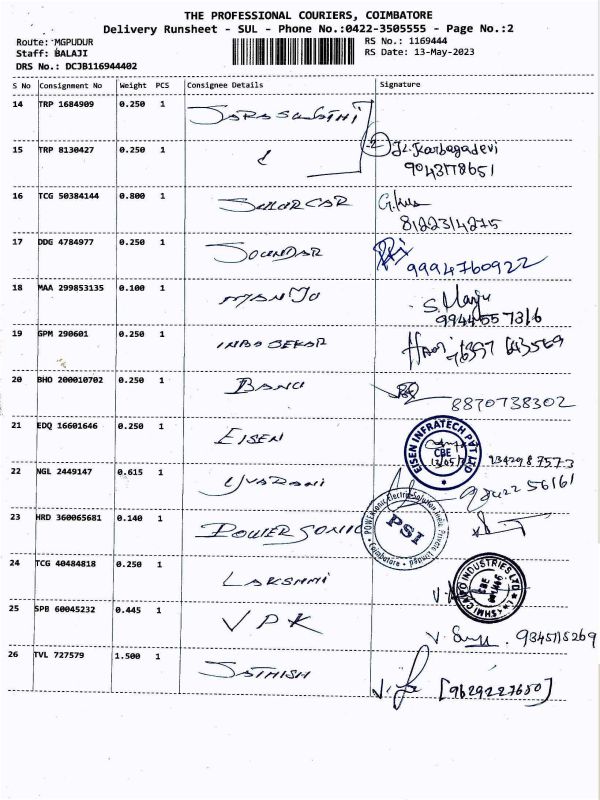 THE PROFESSIONAL COURIERS, COIMBATORE
Delivery Runsheet - SUL - Phone No.:0422-3505555 - Page No.:2
Route: MGPUDUR RS No.: 1169444
Staff: BALAJI RS Date: 13-May-2023
DRS No.: DCJB116944402
S No Consignment No Weight PCS Consignee Details Signature
14 TRP 1684909 0.250 1
15 TRP 8130427 0.250 1 K. Karbagadevi
9043178651
16 TCG 50384144 0.800 1
8122314275
17 DDG 4784977 0.250 1 SOUNDAR
9994760922
18 MAA 299853135 0.100 1 MANJU S. Manju
9944557316
19 GPM 290601 0.250 1 INBASEKAR Hari
20 BHO 200010702 0.250 1 BANU
8870738302
21 EDQ 16601646 0.250 1 EISEN EISEN INFRATECH PVT LTD
CBE
22 NGL 2449147 0.615 1 YUVARANI
23 HRD 360065681 0.140 1 POWERSONIC PSI
24 TCG 40484818 0.250 1 LAKSHMI
25 SPB 60045232 0.445 1 VPK
26 TVL 727579 1.500 1 SATHISH [9629227650]